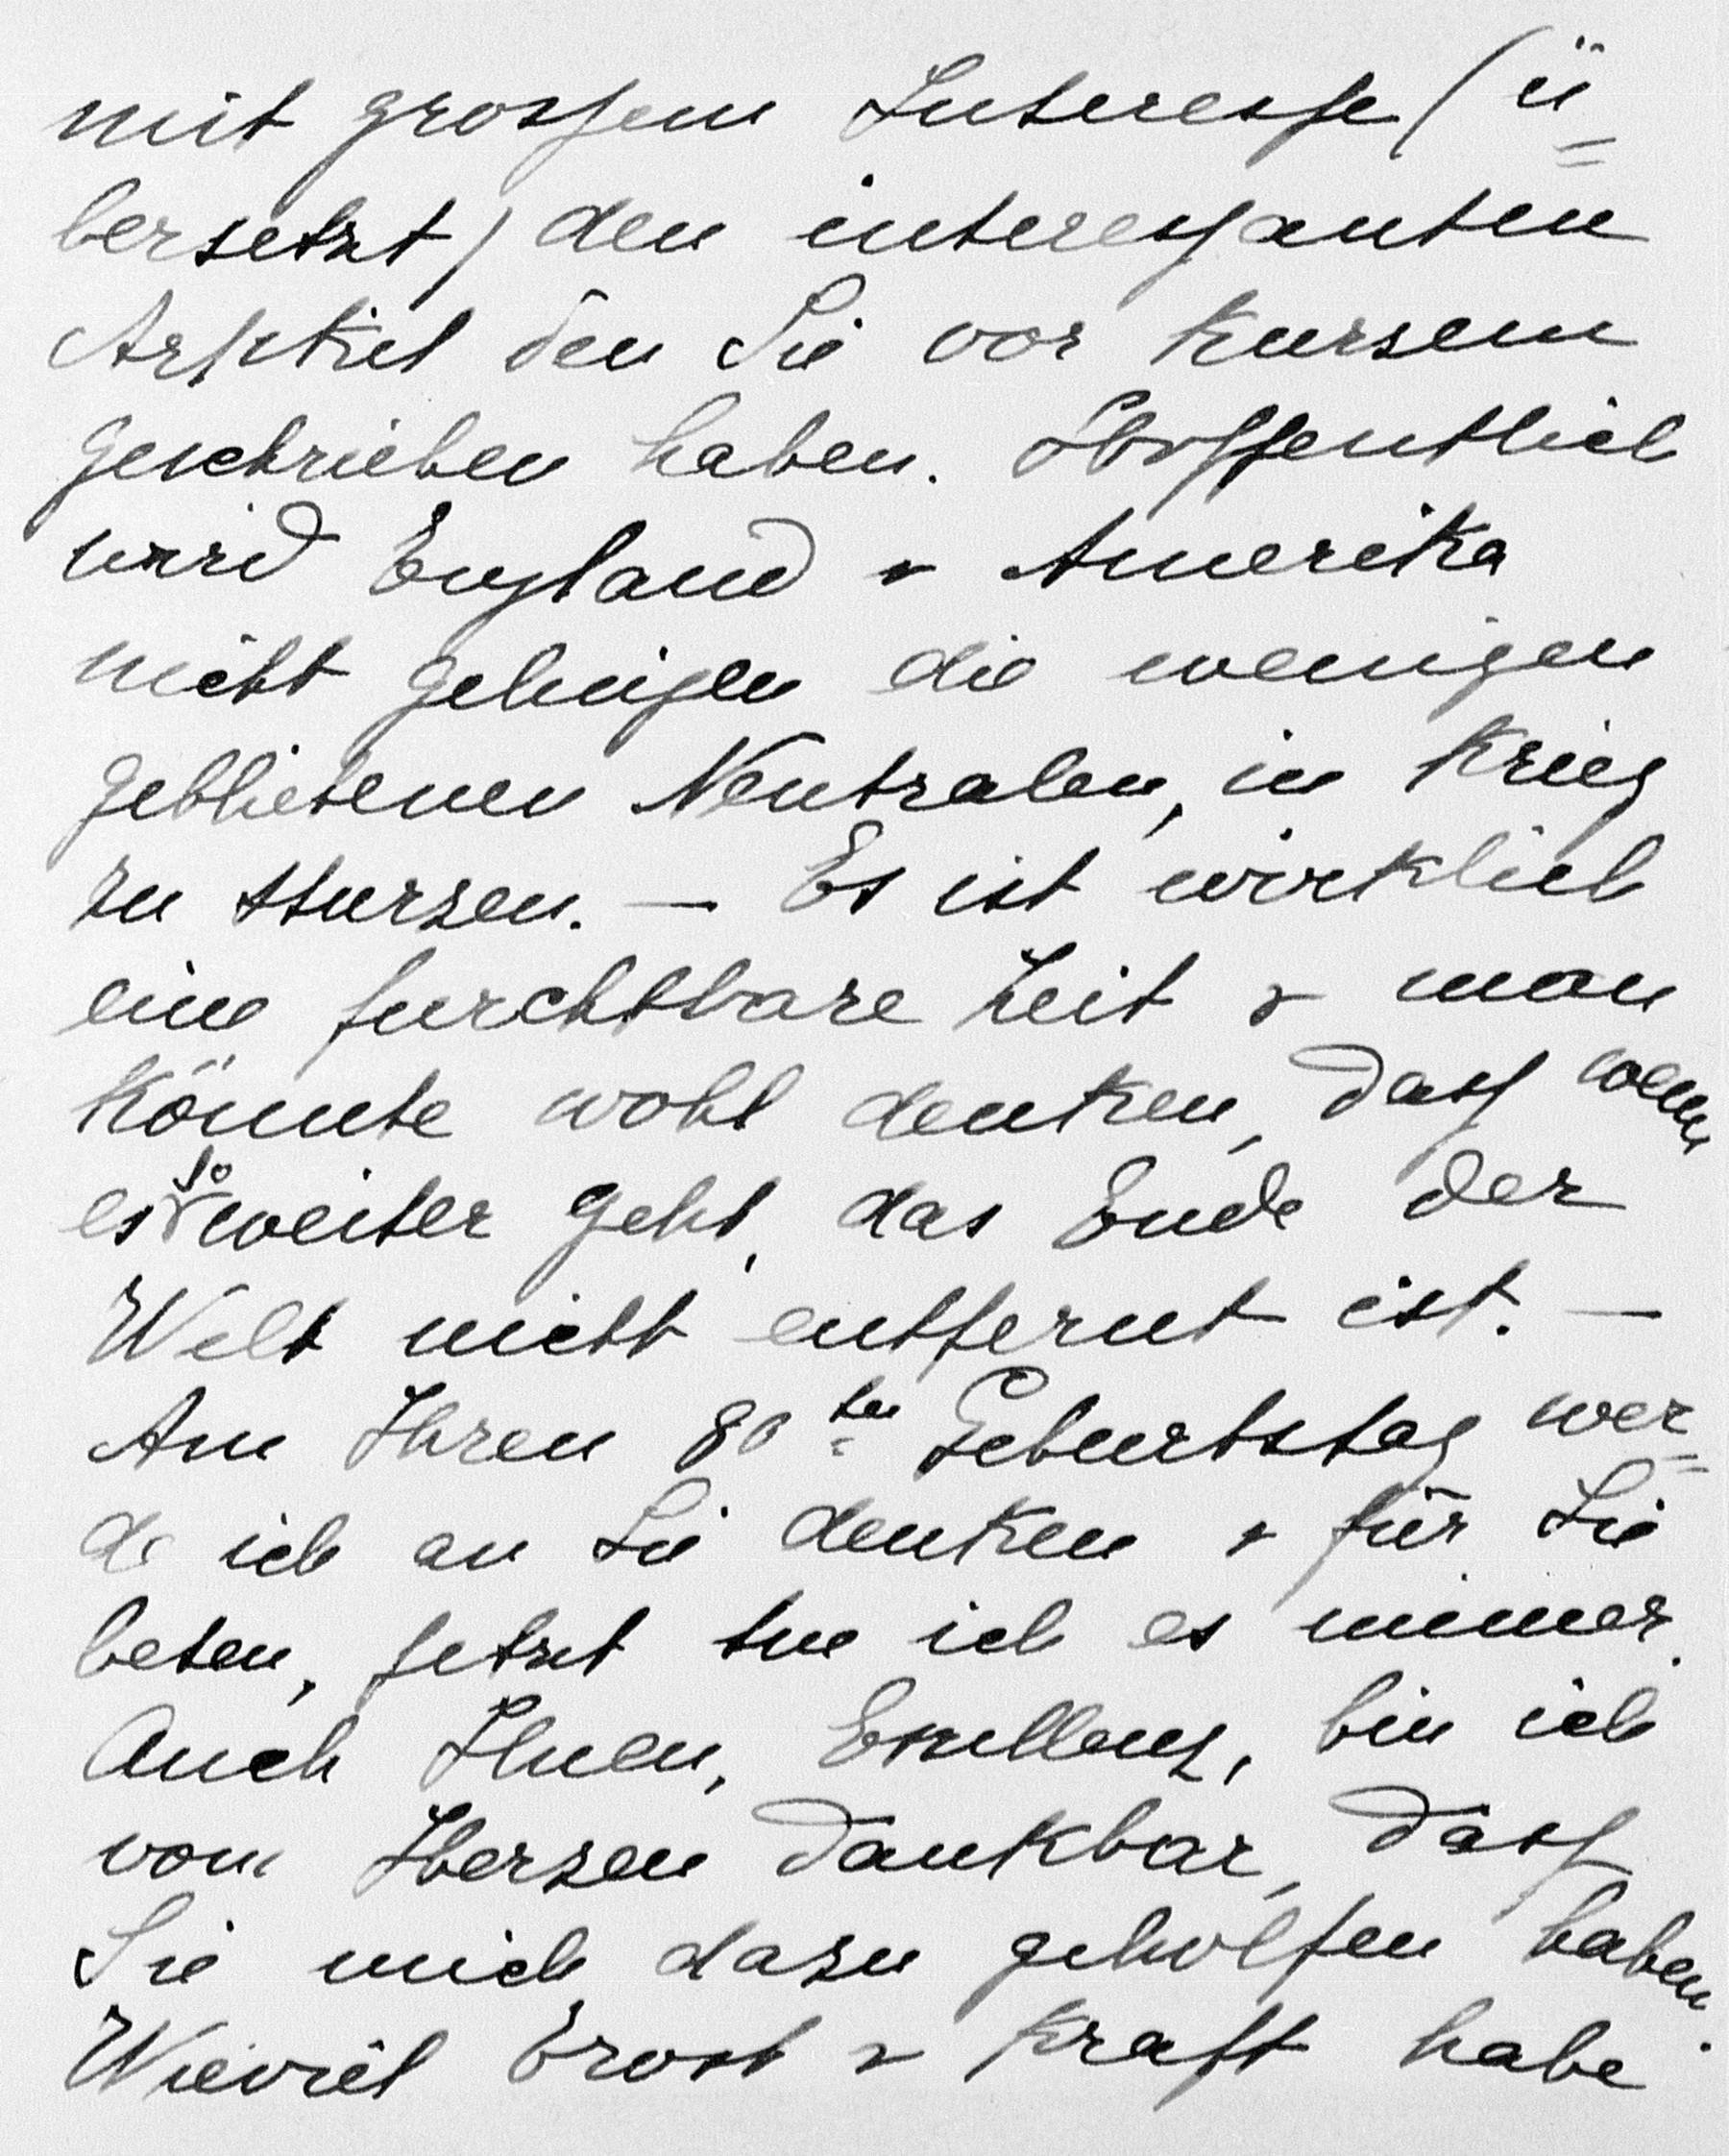 mit grossem Interesse (ü=
bersetzt) den interessanten
Artikel den Sie vor Kurzem
geschrieben haben. Hoffentlich
wird England & Amerika
nicht gelingen die wenigen
gebliebenen Neutralen, in Krieg
zu sturzen. — Es ist wirklich
eine furchtbare Zeit & man
könnte wohl denken, dass wenn
es so weiter geht, das Ende der
Welt nicht entfernt ist. —
Am Ihren 80ten Geburtstag wer=
de ich an Sie denken & für Sie
beten, jetzt tue ich es immer.
Auch Ihnen, Exzellenz, bin ich
vom Herzen dankbar, dass
Sie mich dazu geholfen haben.
Wieviel Trost & Kraft habe